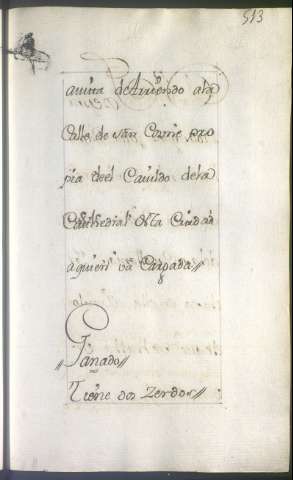 513
avita de Arriendo a la
Calle de san Cosme pro
pia deel Cavildo de la
Cathedral de la Ciudad
a quien va Cargada//
//Ganado
Tiene dos Zerdos//